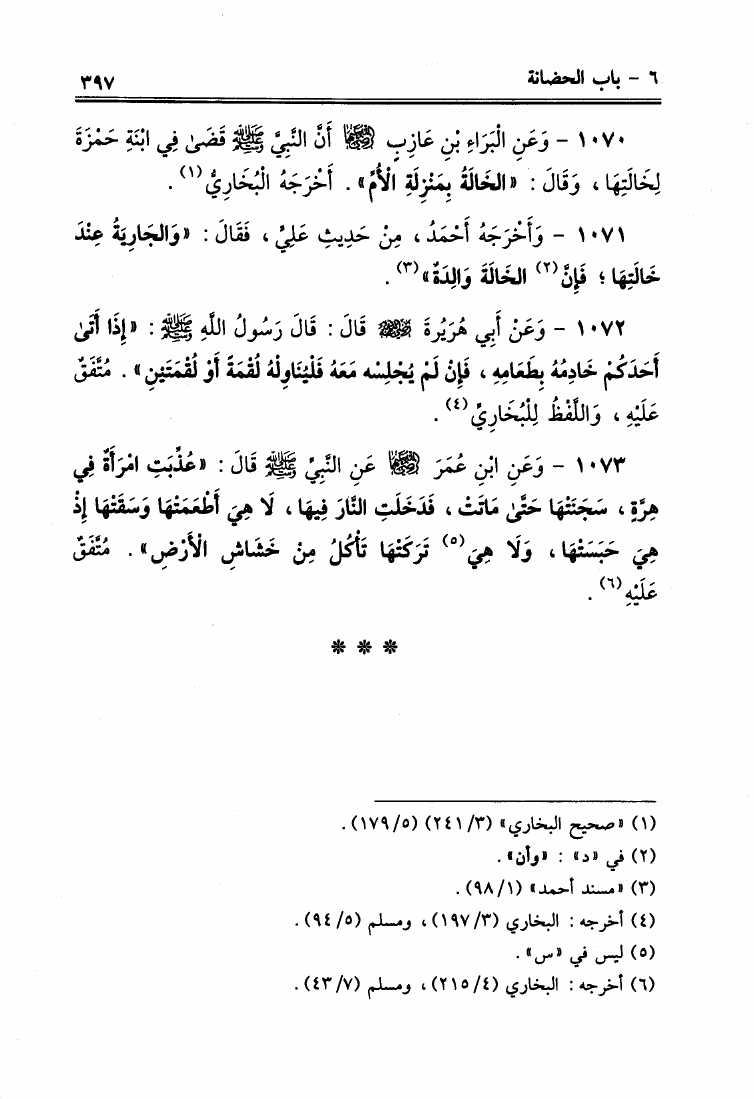 ٦ - باب الحضانة ٣٩٧
١٠٧٠ - وَعَنِ الْبَرَاءِ بْنِ عَازِبٍ رضي الله عنهما أَنَّ النَّبِيَّ ﷺ قَضَىٰ فِي ابْنَةِ حَمْزَةَ
لِخَالَتِهَا، وَقَالَ: «الخَالَةُ بِمَنْزِلَةِ الْأُمِّ». أَخْرَجَهُ الْبُخَارِيُّ(١).
١٠٧١ - وَأَخْرَجَهُ أَحْمَدُ، مِنْ حَدِيثِ عَلِيٍّ، فَقَالَ: «وَالجَارِيَةُ عِنْدَ
خَالَتِهَا؛ فَإِنَّ(٢) الخَالَةَ وَالِدَةٌ»(٣).
١٠٧٢ - وَعَنْ أَبِي هُرَيْرَةَ رضي الله عنه قَالَ: قَالَ رَسُولُ اللَّهِ ﷺ: «إِذَا أَتَىٰ
أَحَدَكُمْ خَادِمُهُ بِطَعَامِهِ، فَإِنْ لَمْ يُجْلِسْه مَعَهُ فَلْيُنَاوِلْهُ لُقْمَةً أَوْ لُقْمَتَيْنِ». مُتَّفَقٌ
عَلَيْهِ، وَاللَّفْظُ لِلْبُخَارِيِّ(٤).
١٠٧٣ - وَعَنِ ابْنِ عُمَرَ رضي الله عنهما عَنِ النَّبِيِّ ﷺ قَالَ: «عُذِّبَتِ امْرَأَةٌ فِي
هِرَّةٍ، سَجَنَتْهَا حَتَّىٰ مَاتَتْ، فَدَخَلَتِ النَّارَ فِيهَا، لَا هِيَ أَطْعَمَتْهَا وَسَقَتْهَا إِذْ
هِيَ حَبَسَتْهَا، وَلَا هِيَ(٥) تَرَكَتْهَا تَأْكُلُ مِنْ خَشَاشِ الْأَرْضِ». مُتَّفَقٌ
عَلَيْهِ(٦).
* * *
(١) «صحيح البخاري» (٢٤١/٣) (١٧٩/٥).
(٢) في «د»: «وأن».
(٣) «مسند أحمد» (٩٨/١).
(٤) أخرجه: البخاري (١٩٧/٣)، ومسلم (٩٤/٥).
(٥) ليس في «س».
(٦) أخرجه: البخاري (٢١٥/٤)، ومسلم (٤٣/٧).